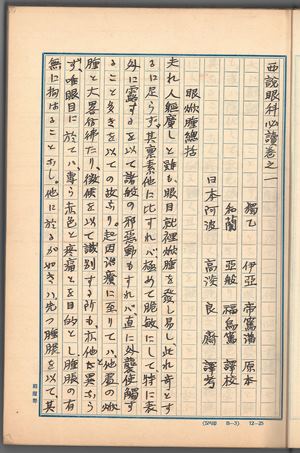 西説眼科必讀巻之一
獨乙 伊亞 帝窩溏 原本
和蘭 亞般 福烏篤 譯校
日本阿波 高淡 良齋 譯考
眼焮腫總括
夫れ人軀廣しと雖も、眼目就裡焮腫を發し易し、此れ奇とす
るに足らず、其裏素他に比すれバ極めて脆敏にして特に表
外に露するを以て諸般の邪感動もすれバ直に外襲侵觸す
ること多きを以ての故なり。起因治療に至りてハ他畳の焮
腫と大畧彷彿たり、徴候を以て識別する所も亦他と異なら
ず、唯眼目に於てハ専ら赤色と疼痛とを目的とし腫脹の有
無に拘はることなし。他に於るが如きハ先つ腫脹を以て其
(5月10 B-3) 12-25